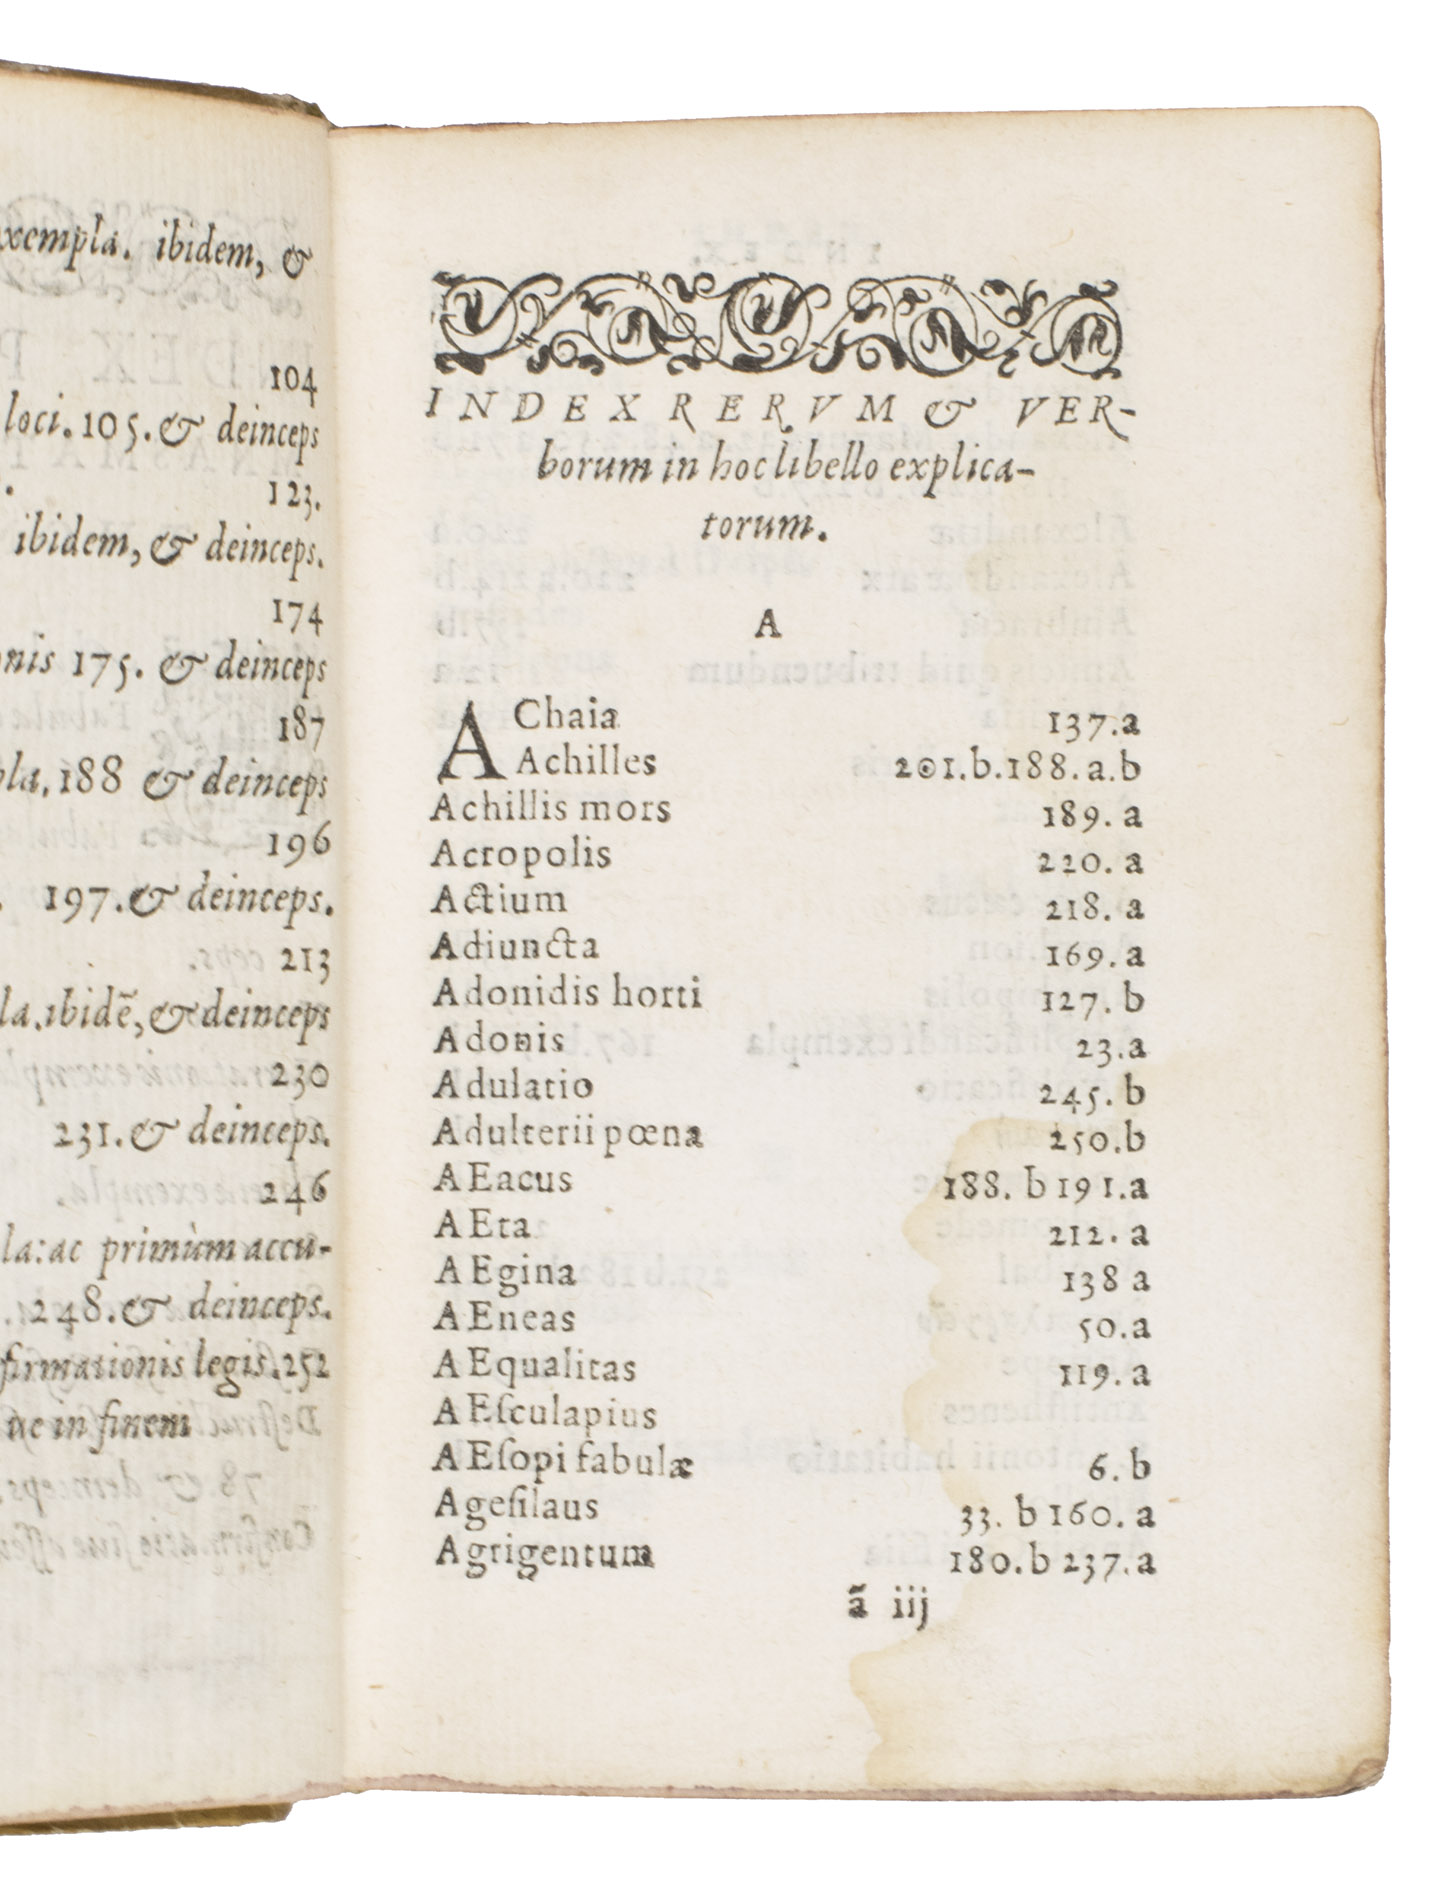 xempla. ibidem, &
104
loci. 105. & deinceps
. 123.
ibidem, & deinceps.
174
nis 175. & deinceps
187
pla. 188 & deinceps
196
. 197. & deinceps.
213
la. ibidē, & deinceps
230
231. & deinceps.
246
la: ac primùm accu-
248. & deinceps.
firmationis legis. 252
ue in finem
INDEX RERVM & VER-
borum in hoc libello explica-
torum.
A
AChaia 137.a
Achilles 201.b.188.a.b
Achillis mors 189. a
Acropolis 220. a
Actium 218. a
Adiuncta 169. a
Adonidis horti 127. b
Adonis 23.a
Adulatio 245. b
Adulterii pœna 250.b
AEacus 188. b 191.a
AEta 212. a
AEgina 138 a
AEneas 50.a
AEqualitas 119. a
AEſculapius
AEſopi fabulæ 6. b
Ageſilaus 33. b 160. a
Agrigentum 180.b 237.a
ã iij